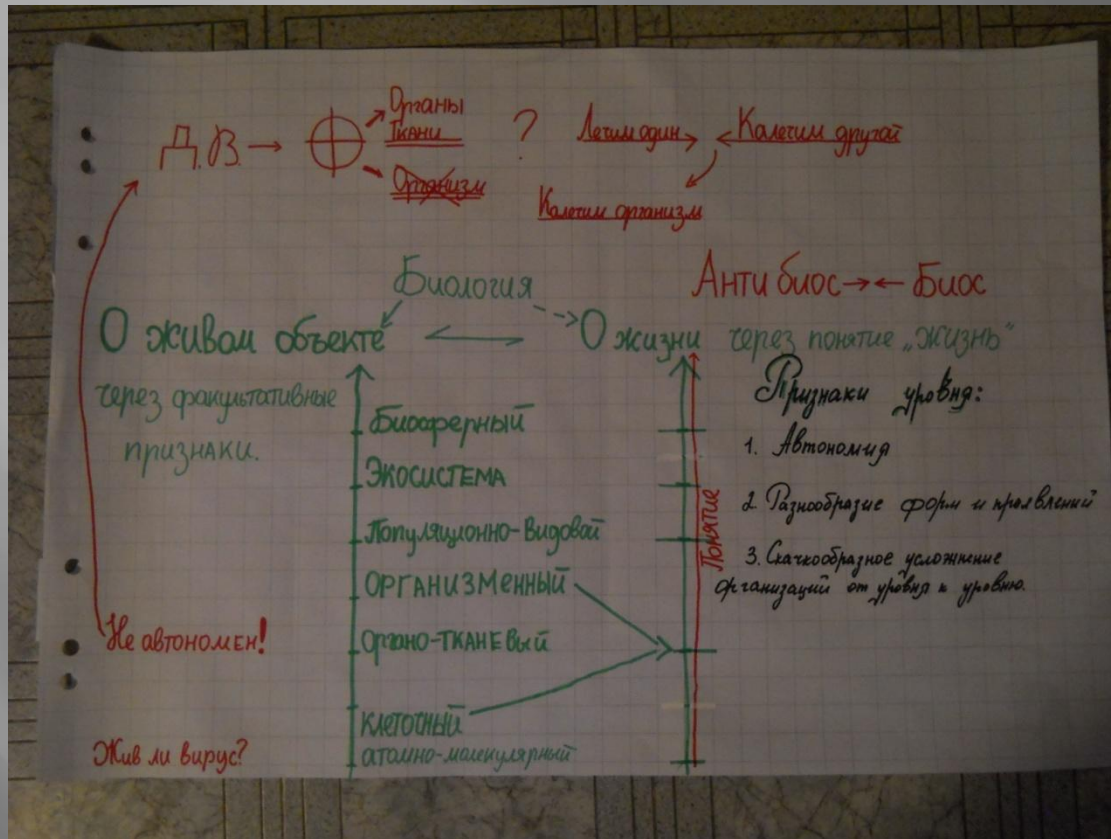 Д.В. → Органы
Ткани
Организм
?
Лечим один → ← Калечим другой
Калечим организм
Биология
Анти биос → ← Биос
О живом объекте
О жизни через понятие „жизнь"
через факультативные
признаки.
Биосферный
ЭКОСИСТЕМА
Популяционно-Видовой
ОРГАНИЗМЕННЫЙ
Органо-ТКАНЕВЫЙ
КЛЕТОЧНЫЙ
атомно-молекулярный
Понятие
Признаки уровня:
1. Автономия
2. Разнообразие форм и проявлений
3. Скачкообразное усложнение
организаций от уровня к уровню.
Не автономен!
Жив ли вирус?